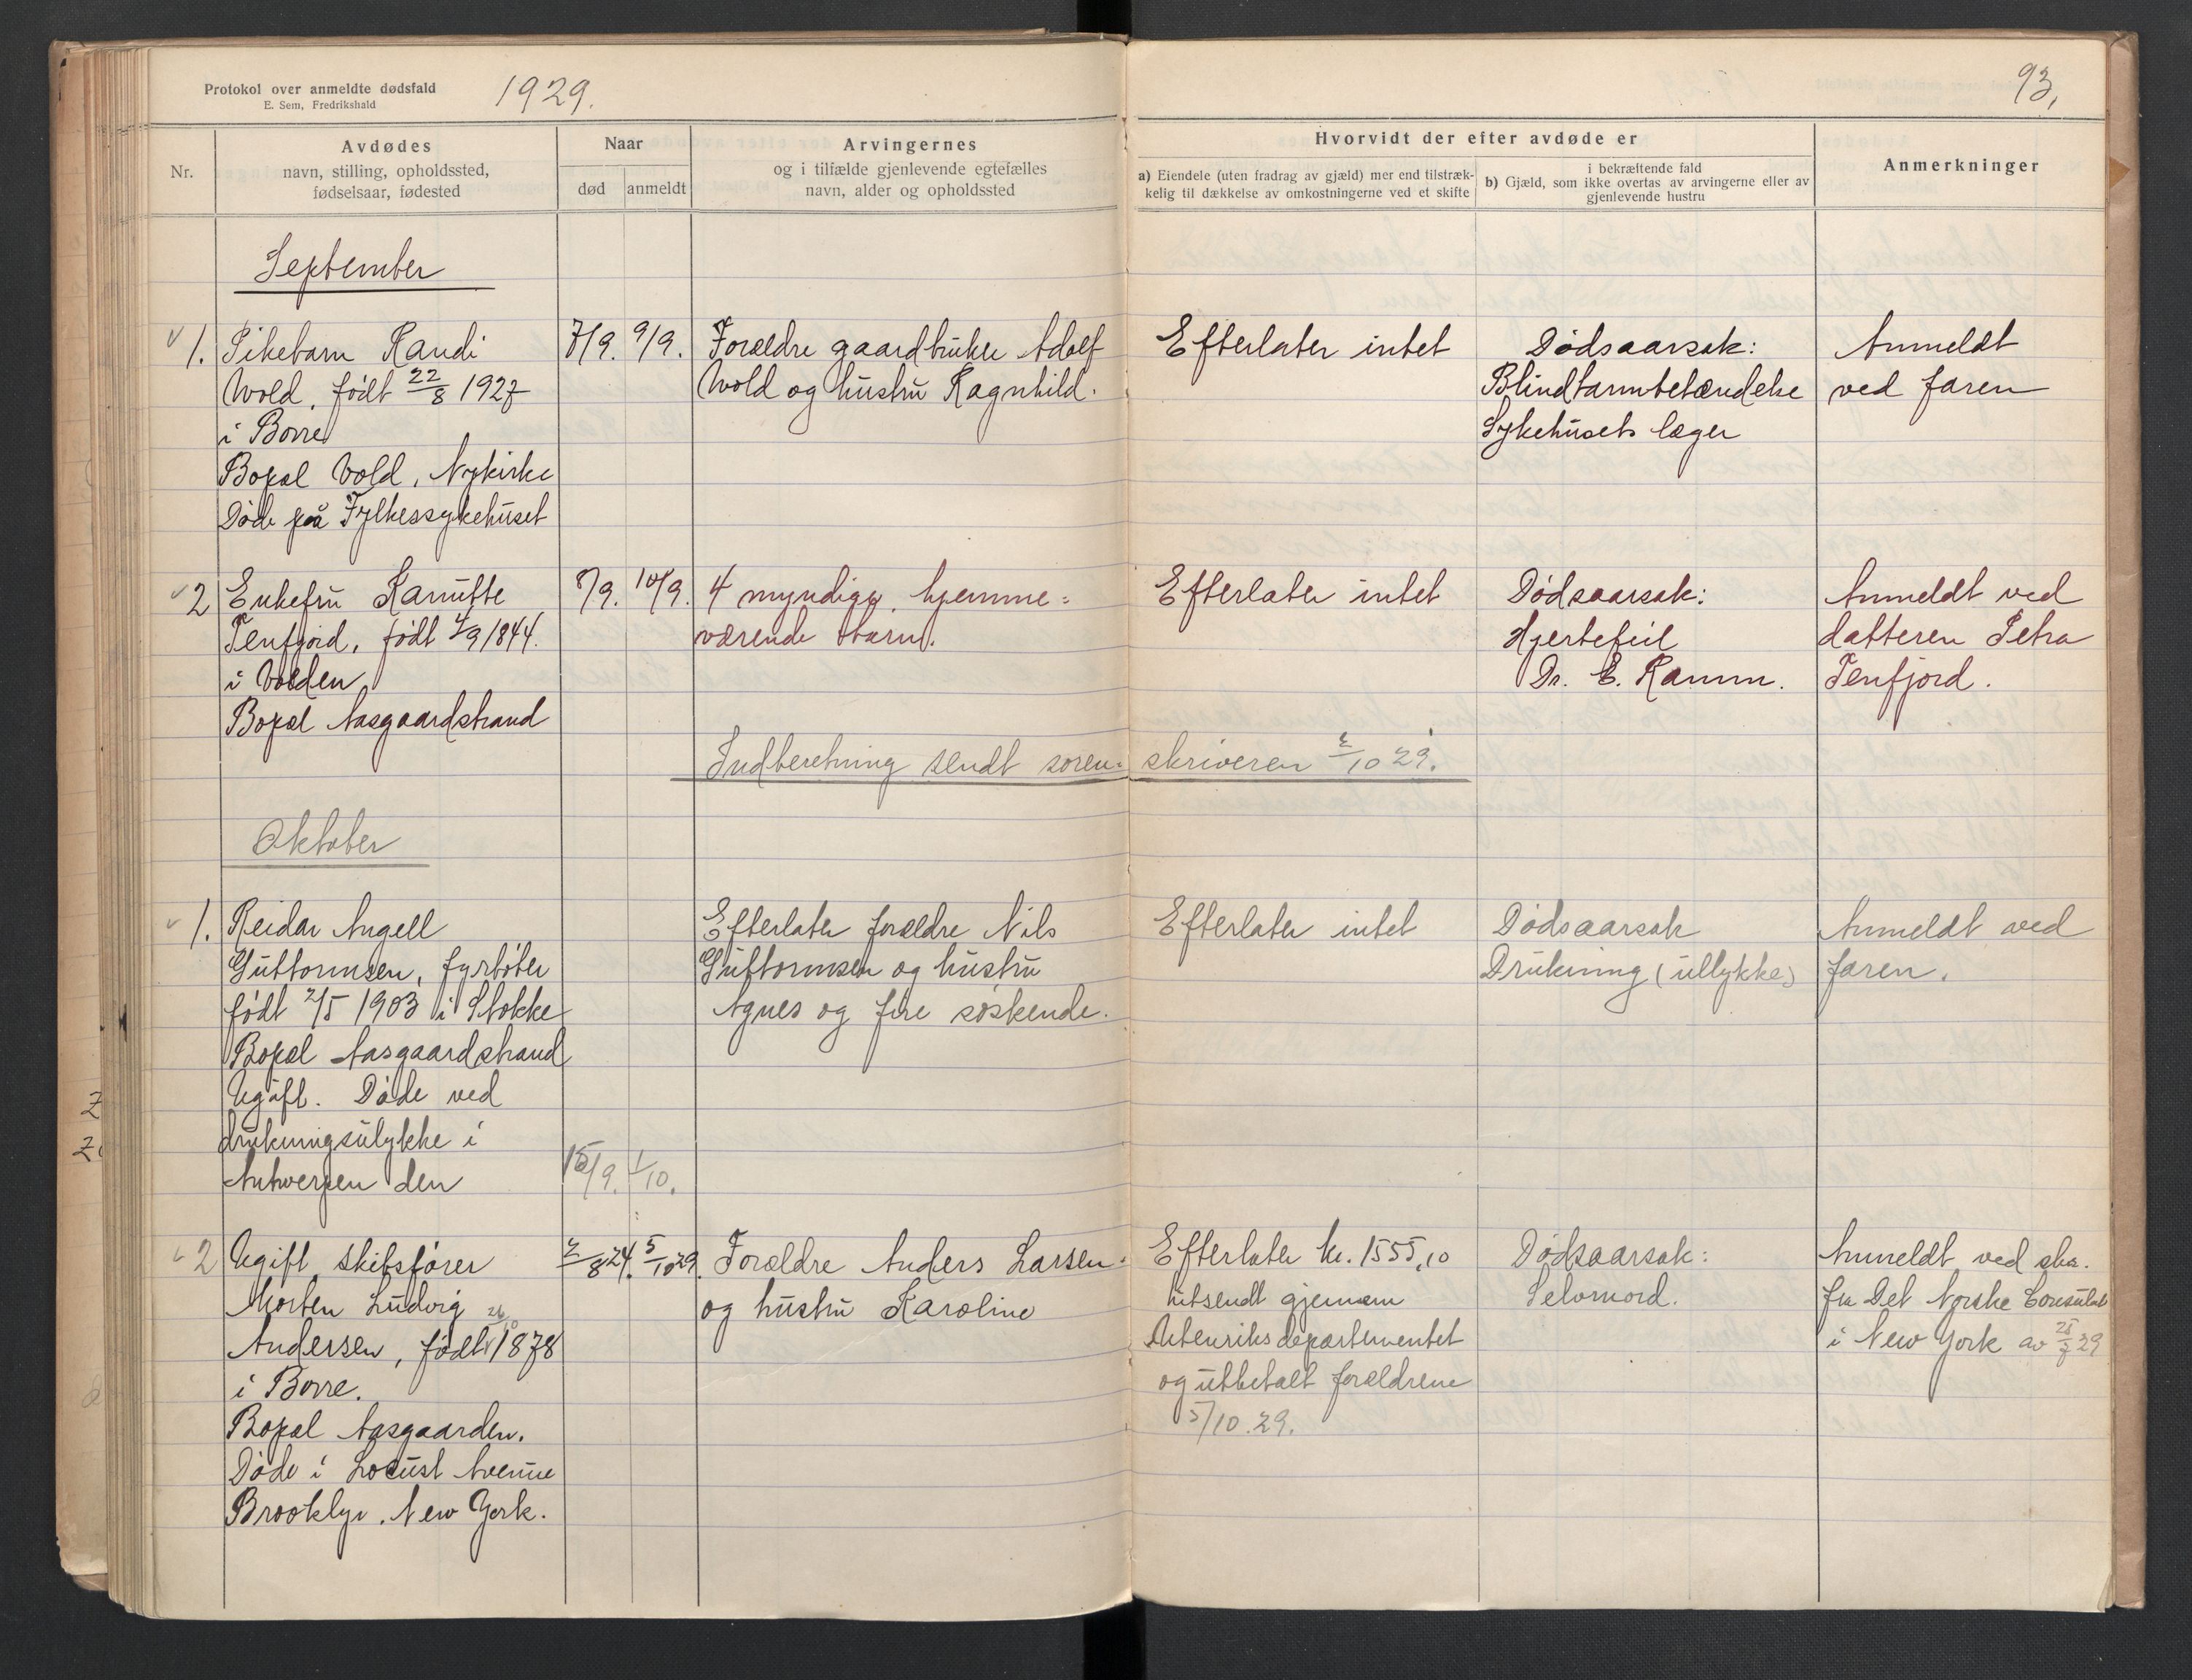 Protokol over anmeldte dødsfald
E. Sem, Fredrikshald
1929.
93,
Nr.
Avdødes
navn, stilling, opholdssted,
fødselsaar, fødested
Naar
død
anmeldt
Arvingernes
og i tilfælde gjenlevende egtefælles
navn, alder og opholdssted
Hvorvidt der efter avdøde er
a) Eiendele (uten fradrag av gjæld) mer end tilstræk-
kelig til dækkelse av omkostningerne ved et skifte
i bekræftende fald
b) Gjæld, som ikke overtas av arvingerne eller av
gjenlevende hustru
Anmerkninger
September
1.
Pikebarn Randi
Wold, født 22/8 1927
i Borre
Bopæl Vold, Nykirke
Døde på Fylkessykehuset
7/9.
9/9.
Forældre gaardbruker Adolf
Wold og hustru Ragnhild.
Efterlater intet
Dødsaarsak:
Blindtarmbetændelse
Sykehusets læger
Anmeldt
ved faren
2
Enkefru Kanutte
Tenfjord, født 4/9 1844.
i Volden
Bopæl Aasgaardstrand
8/9.
10/9.
4 myndige, hjemme=
værende barn.
Efterlater intet
Dødsaarsak:
Hjertefeil
Dr. E. Ramm.
Anmeldt ved
datteren Petra
Tenfjord.
Indberetning sendt soren=skriveren 2/10 29.
Oktober
1.
Reidar Angell
Guttormsen, fyrbøter
født 2/5 1903 i Stokke
Bopæl Aasgaardstrand
Ugift. Døde ved
drukningsulykke i
Antwerpen den
15/9.
1/10.
Efterlater forældre Nils
Guttormsen og hustru
Agnes og fire søskende.
Efterlater intet
Dødsaarsak
Drukning (ullykke)
Anmeldt ved
faren.
2
Ugift skibsfører
Morten Ludvig
Andersen, født 26/10 1878
i Borre.
Bopæl Aasgaarden.
Døde i Locust Avenue
Brooklyn. New York.
2/8 24.
5/10 29.
Forældre Anders Larsen
og hustru Karoline
Efterlater kr. 1555,10
utsendt gjennem
Utenriksdepartementet
og utbetalt forældrene
5/10.29.
Dødsaarsak:
Selvmord.
Anmeldt ved skr.
fra Det Norske Consulat
i New York av 25/7 29